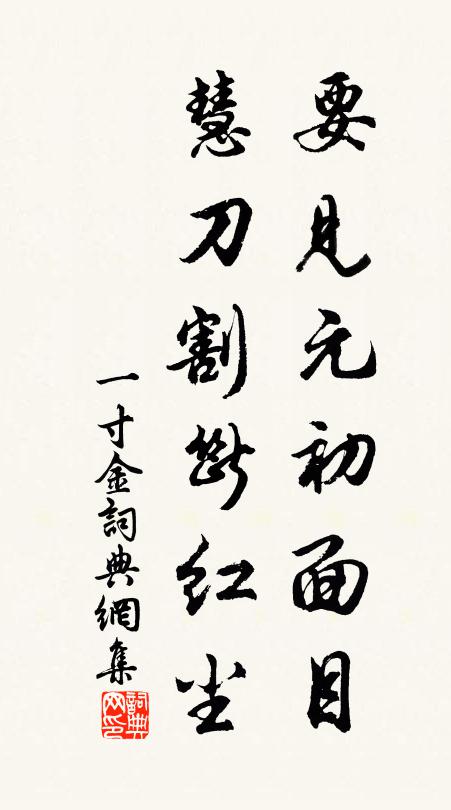 要見元初面目
慧刀割斷紅尘
一寸金詞典網集
詞典网印